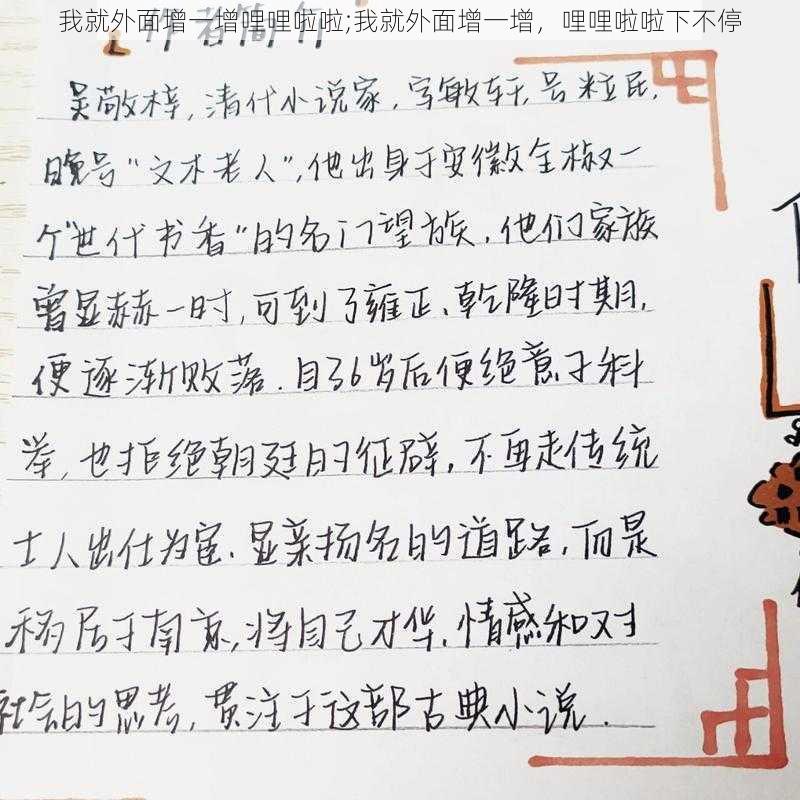 我就外面增一增哩哩啦啦;我就外面增一增，哩哩啦啦下不停
作者简介
吴敬梓,清代小说家,字敏轩,号粒民,
晚号“文木老人”,他出身于安徽全椒一
个“世代书香”的名门望族,他们家族
曾显赫一时,可到了雍正、乾隆时期,
便逐渐败落.自36岁后便绝意于科
举,也拒绝朝廷的征辟,不再走传统
士人出仕为宦、显亲扬名的道路,而是
移居于南京,将自己才华、情感和对
社会的思考,贯注于这部古典小说.